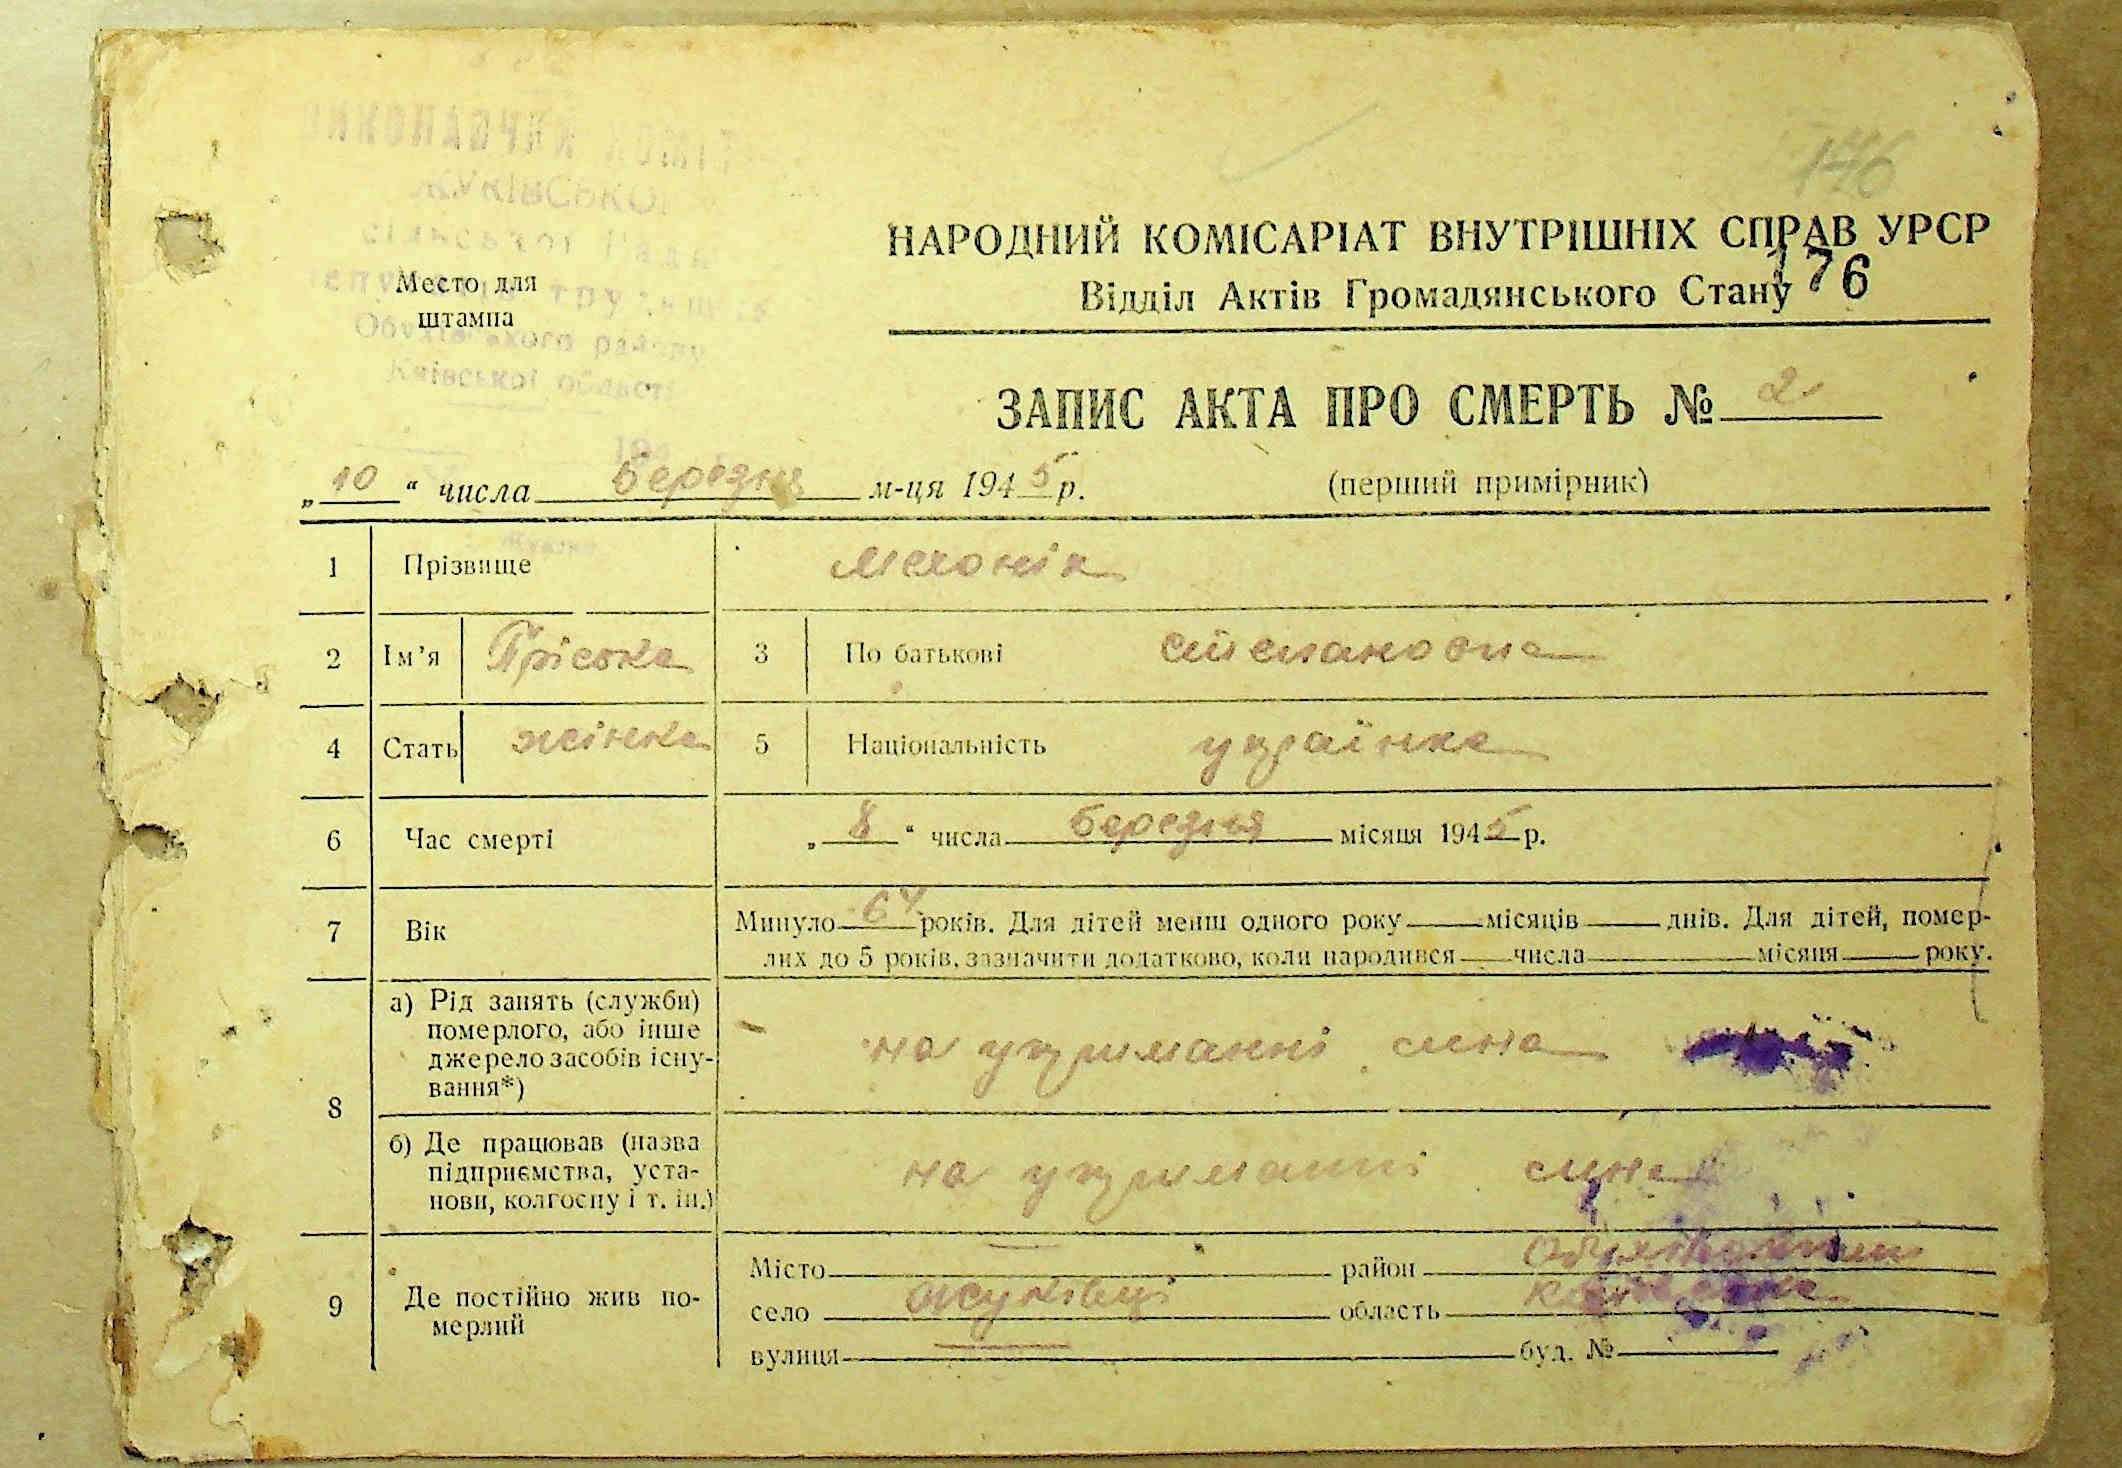 176
НАРОДНИЙ КОМІСАРІАТ ВНУТРІШНІХ СПРАВ УРСР
176
Відділ Актів Громадянського Стану
ЖУКІВСЬКОЇ
сільської Ради
Обухівського району
Київської області
Место для
штампа
ЗАПИС АКТА ПРО СМЕРТЬ № 2
„10“ числа березня м-ця 1945 р.
(перший примірник)
1 Прізвище
2 Ім’я Пріська 3 По батькові Степановна
4 Стать жінка 5 Національність українка
6 Час смерті „8“ числа березня місяця 1945 р.
7 Вік Минуло 64 років. Для дітей менш одного року місяців днів. Для дітей, помер-
лих до 5 років, зазначити додатково, коли народився числа місяця року.
8 а) Рід занять (служби)
померлого, або інше
джерело засобів існу-
вання*)
на утриманні сина
б) Де працював (назва
підприємства, уста-
нови, колгоспу і т. ін.)
на утриманні сина
9 Де постійно жив по-
мерлий
Місто — район Обухівський
село Жуківці область Київська
вулиця — буд. №